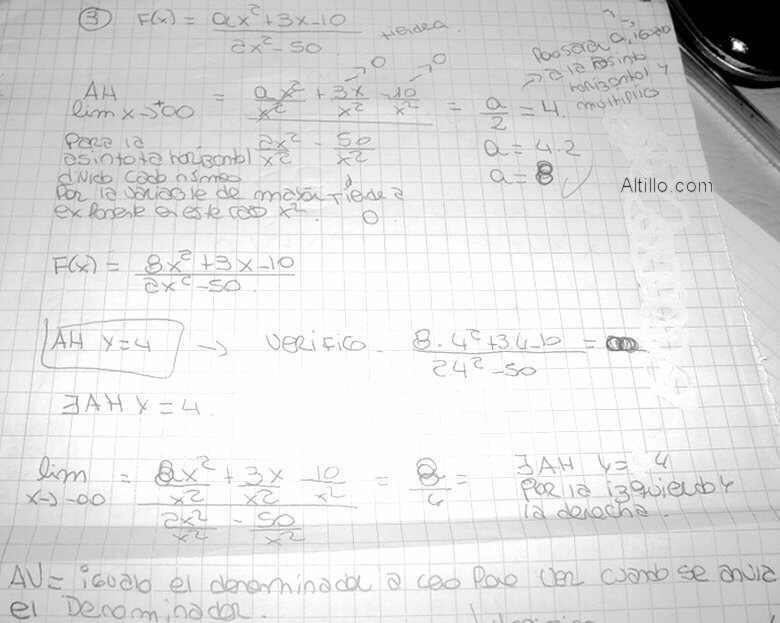 ③ F(x) = ax²+3x-10 / 2x²-50 tiende a
Para sacar a, igualo
a la asinto
horizontal y
multiplico
AH lim x→+∞ = (ax²/x² + 3x/x² - 10/x²) / (2x²/x² - 50/x²) = a/2 = 4.
→0 →0
a = 4.2
a = 8
Para la
asintota horizontal
divido cada número
Por la variable de mayor tiende a
exponente en este caso x². 0.
Altillo.com
F(x) = 8x²+3x-10 / 2x²-50.
AH y=4 → Verifico. 8.4²+34-10 / 24²-50 =
∃AH y=4.
lim x→-∞ = (8x²/x² + 3x/x² - 10/x²) / (2x²/x² - 50/x²) = =
∃AH y= 4
Por la izquierda y
la derecha.
AV= igualo el denominador a cero Para ver cuando se anula
el Denominador.